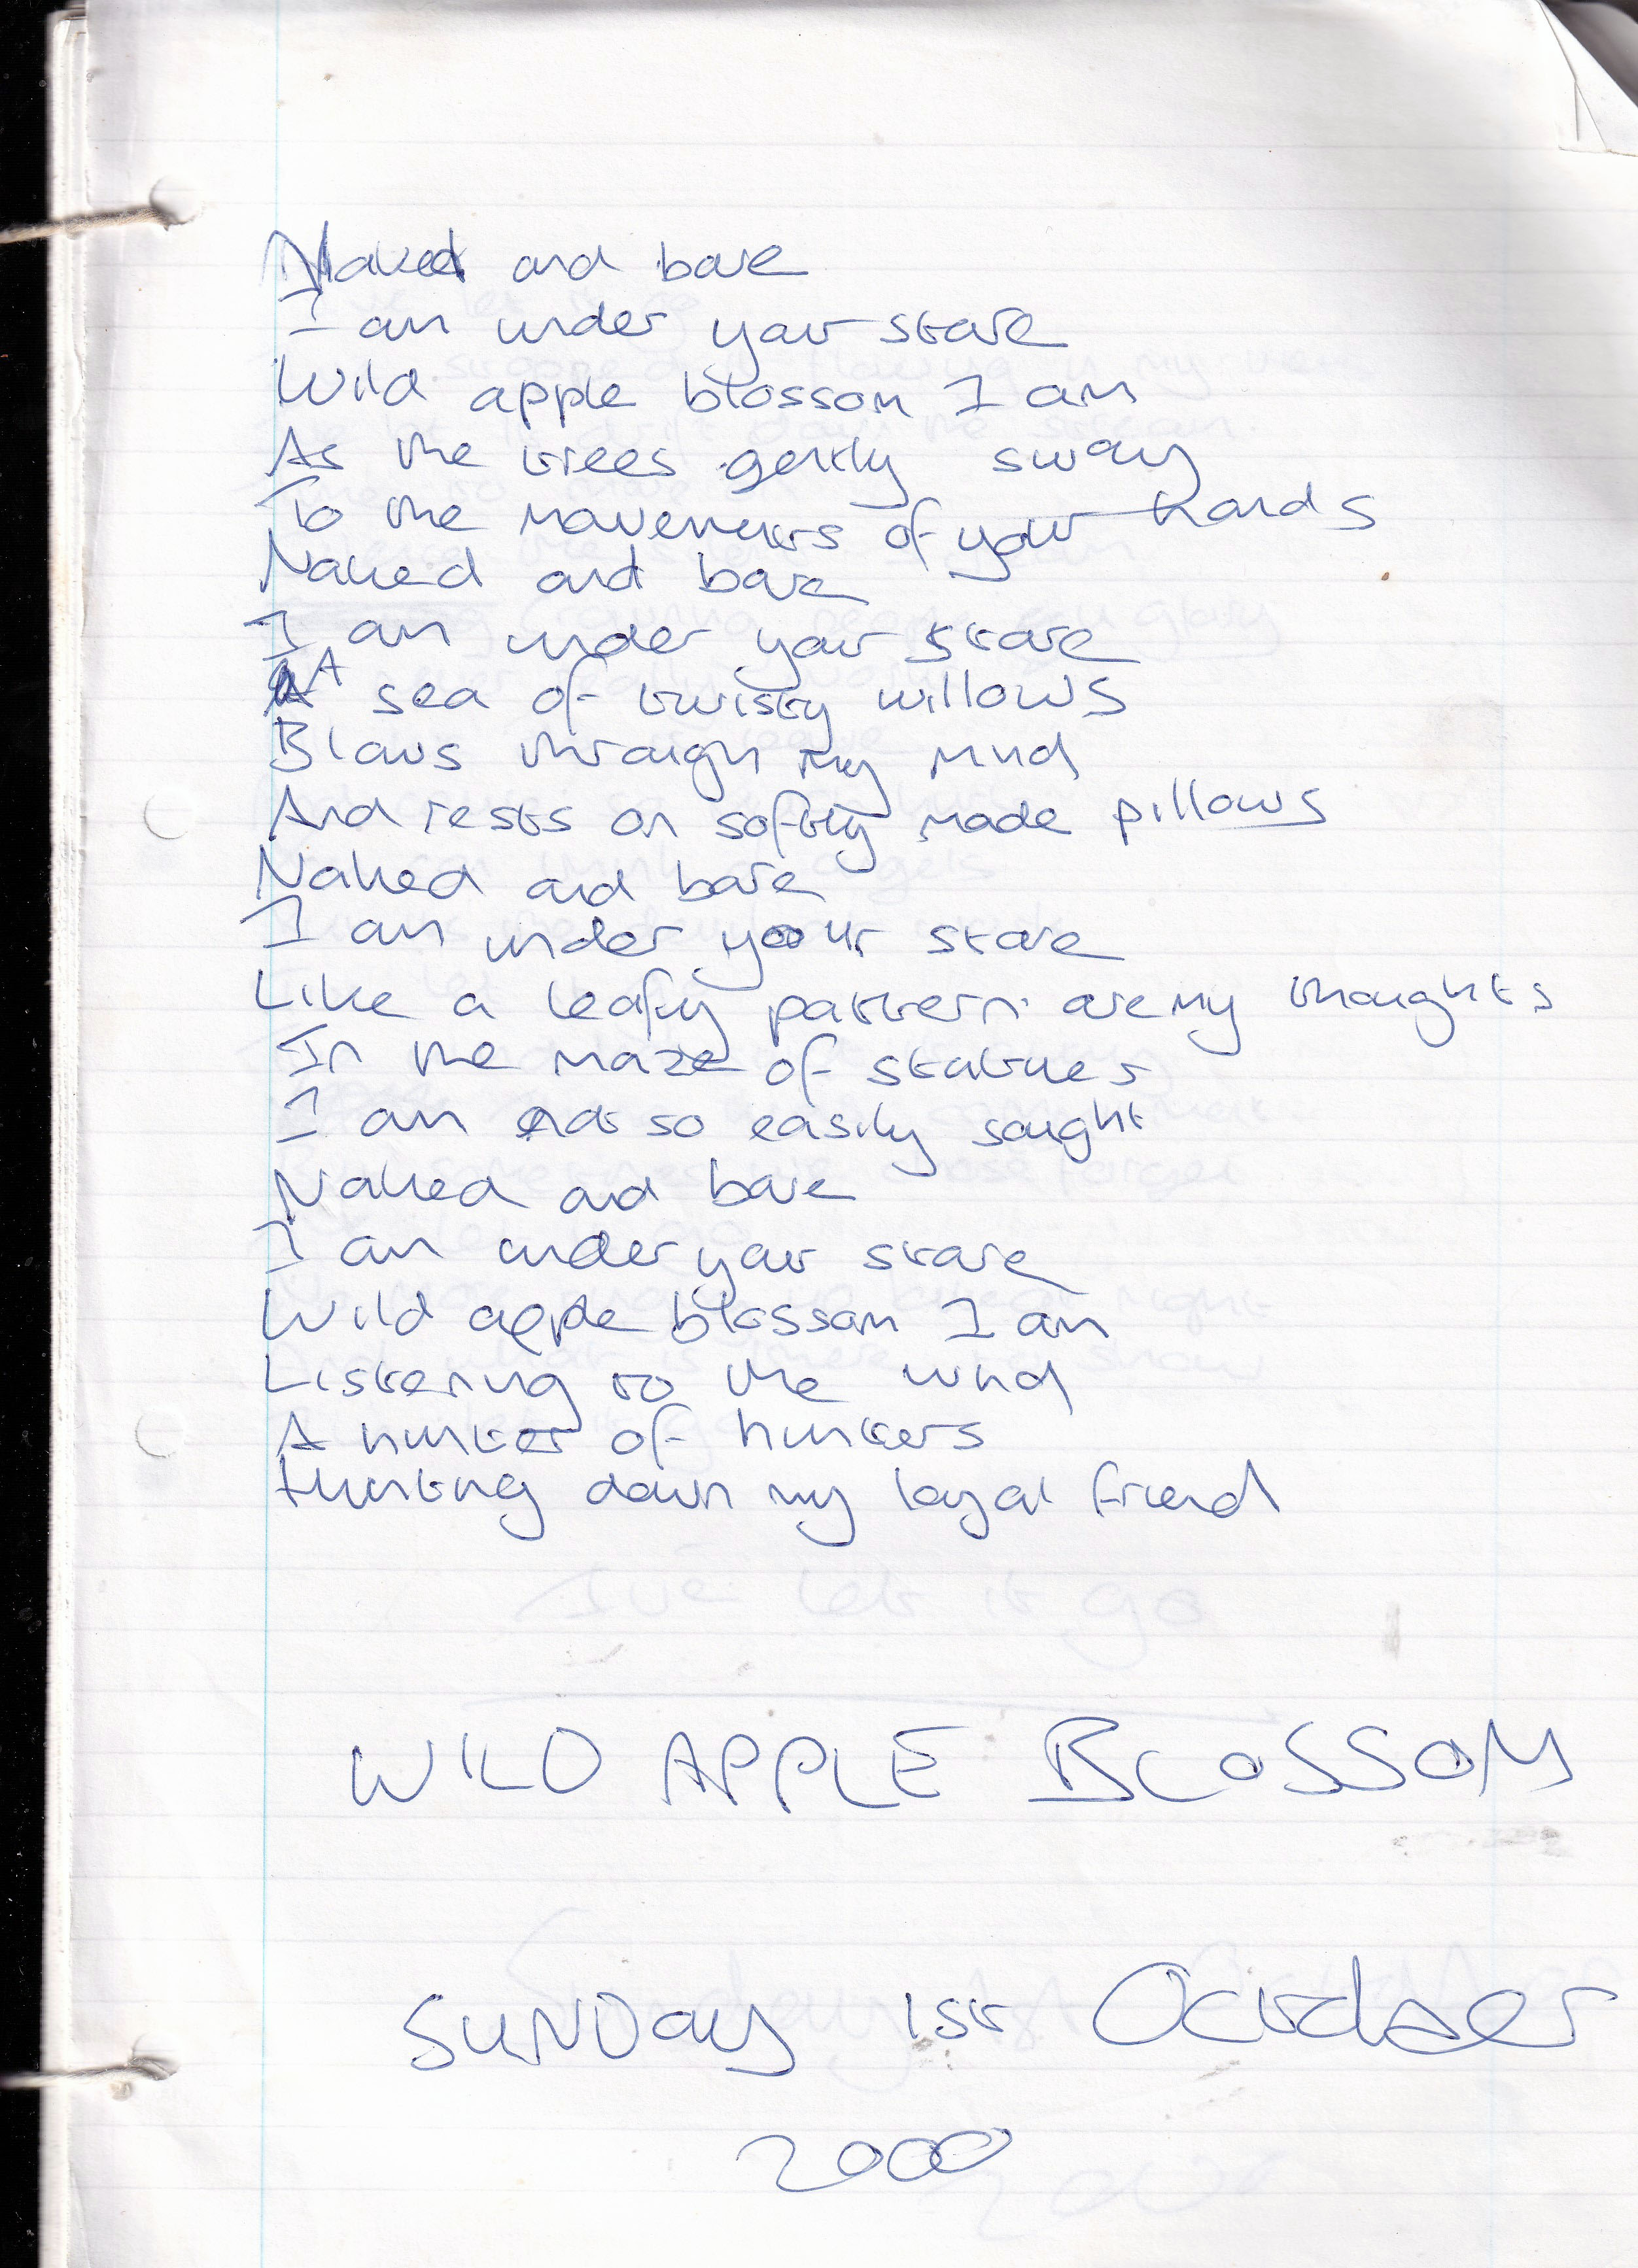 Naked and bare
I am under your stare
Wild apple blossom I am
As the trees gently sway
To the movements of your hands
Naked and bare
I am under your stare
A sea of twisty willows
Blows through my mind
And rests on softly made pillows
Naked and bare
I am under your stare
Like a leafy pattern are my thoughts
In the maze of statues
I am not so easily sought
Naked and bare
I am under your stare
Wild apple blossom I am
Listening to the wind
A hunter of hunters
Hunting down my loyal friend
I've let it go
WILD APPLE BLOSSOM
SUNDay 1st October
2000